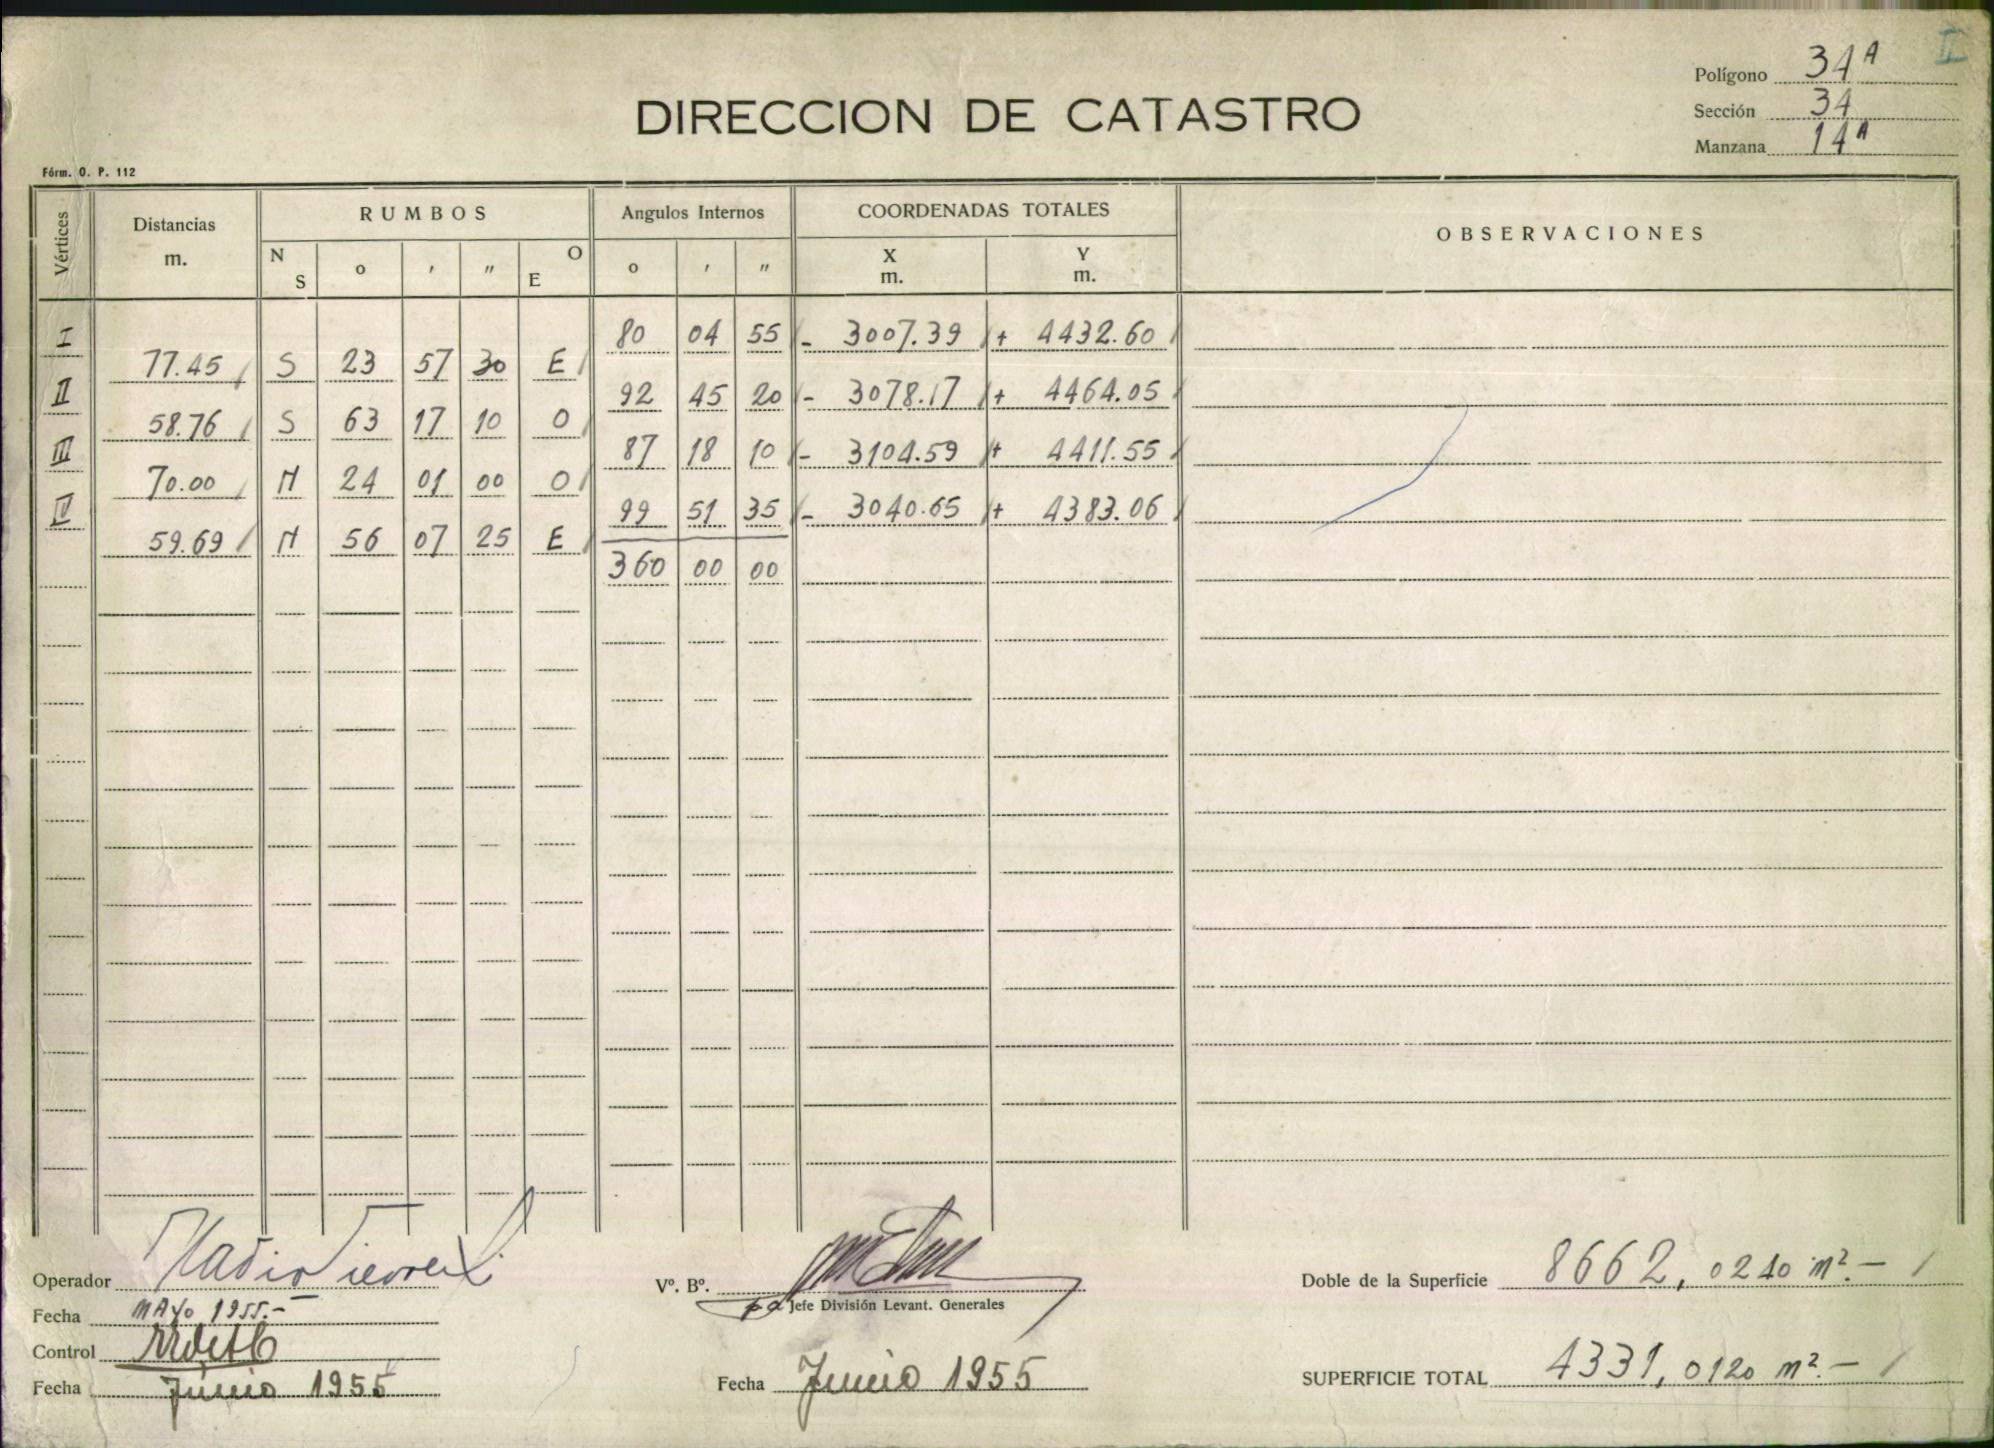 II
Polígono 34A
DIRECCION DE CATASTRO
Sección 34
Manzana 14A
Fórm. O. P. 112
Vértices Distancias m. RUMBOS Angulos Internos COORDENADAS TOTALES OBSERVACIONES
N S o ' " O E o ' " X m. Y m.
I 80 04 55 - 3007.39 + 4432.60
77.45 S 23 57 30 E
II 92 45 20 - 3078.17 + 4464.05
58.76 S 63 17 10 O
III 87 18 10 - 3104.59 + 4411.55
70.00 N 24 01 00 O
IV 99 51 35 - 3040.65 + 4383.06
59.69 N 56 07 25 E
360 00 00
Operador
Vº. Bº.
Doble de la Superficie 8662,0240 m².-
Fecha MAYO 1955.-
Jefe División Levant. Generales
Control
Fecha Junio 1955
Fecha Junio 1955
SUPERFICIE TOTAL 4331,0120 m².-